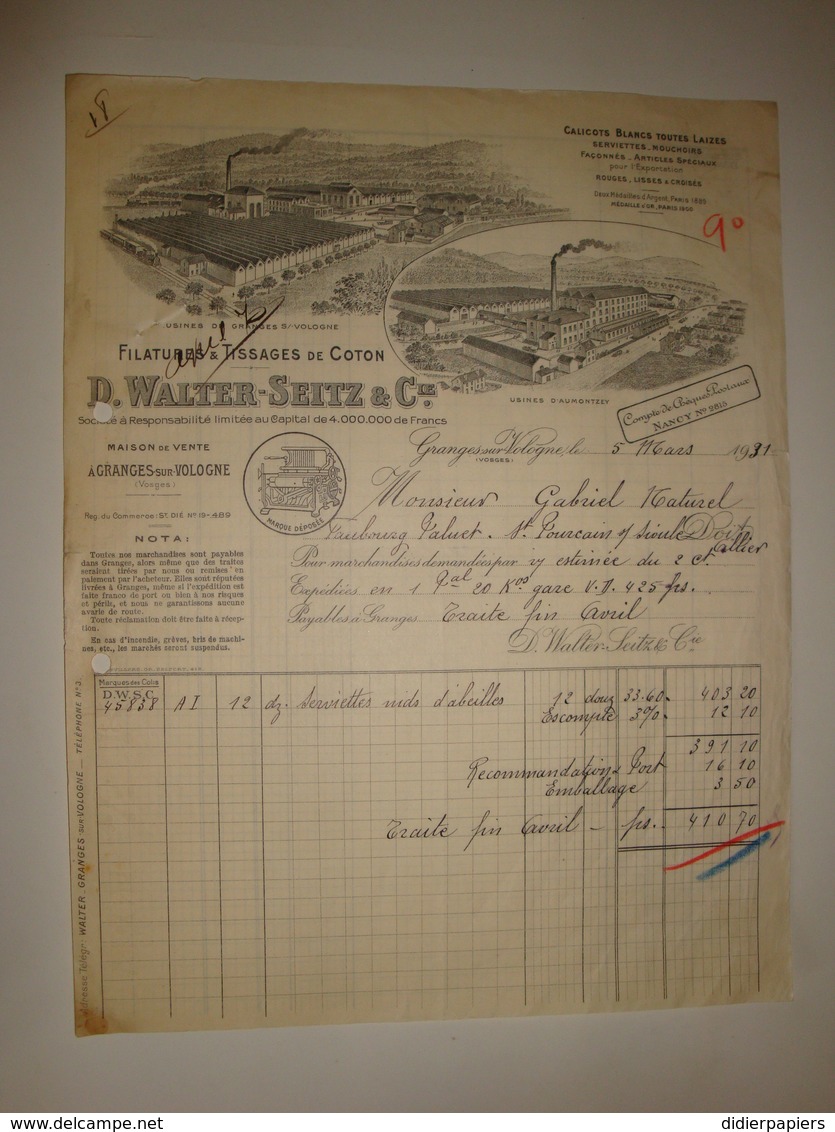 18
CALICOTS BLANCS TOUTES LAIZES
SERVIETTES_MOUCHOIRS
FAÇONNÉS_ARTICLES SPÉCIAUX
pour l'Exportation
ROUGES, LISSES & CROISÉS
Deux Médailles d'Argent, PARIS 1889
MÉDAILLE D'OR, PARIS 1900
90
USINES DE GRANGES S/VOLOGNE
FILATURES & TISSAGES DE COTON
D. WALTER-SEITZ & CIE
Société à Responsabilité limitée au Capital de 4.000.000 de Francs
USINES D'AUMONTZEY
Compte de Chèques Postaux
NANCY No 2813
MAISON DE VENTE
À GRANGES-SUR-VOLOGNE
(Vosges)
Reg. du Commerce: ST. DIÉ No 19-489
MARQUE DÉPOSÉE
Granges-sur-Vologne, le 5 Mars 1931
(VOSGES)
Monsieur Gabriel Naturel
Faubourg Paluet. St. Pourcain s/ Sioule Doit
Allier
Pour marchandises demandées par s/ estimée du 2 ct.
Expédiées en 1 Bal 20 Kos gare V.N. 425 frs.
Payables à Granges Traite fin Avril
D. Walter-Seitz & Cie
NOTA:
Toutes nos marchandises sont payables
dans Granges, alors même que des traites
seraient tirées par nous ou remises en
paiement par l'acheteur. Elles sont réputées
livrées à Granges, même si l'expédition est
faite franco de port ou bien à nos risques
et périls, et nous ne garantissons aucune
avarie de route.
Toute réclamation doit être faite à récep-
tion.
En cas d'incendie, grèves, bris de machi-
nes, etc., les marchés seront suspendus.
Marques des Colis
D.W.S.C.
45858 A I 12 dz. Serviettes nids d'abeilles 12 douz 33.60. 403 20
Escompte 3%. 12 10
391 10
Recommandation & Port 16 10
Emballage 3 50
Traite fin Avril — frs. 410 70
Adresse Télégr: WALTER-GRANGES-SUR-VOLOGNE — TÉLÉPHONE No 3.
delcampe.net
didierpapiers